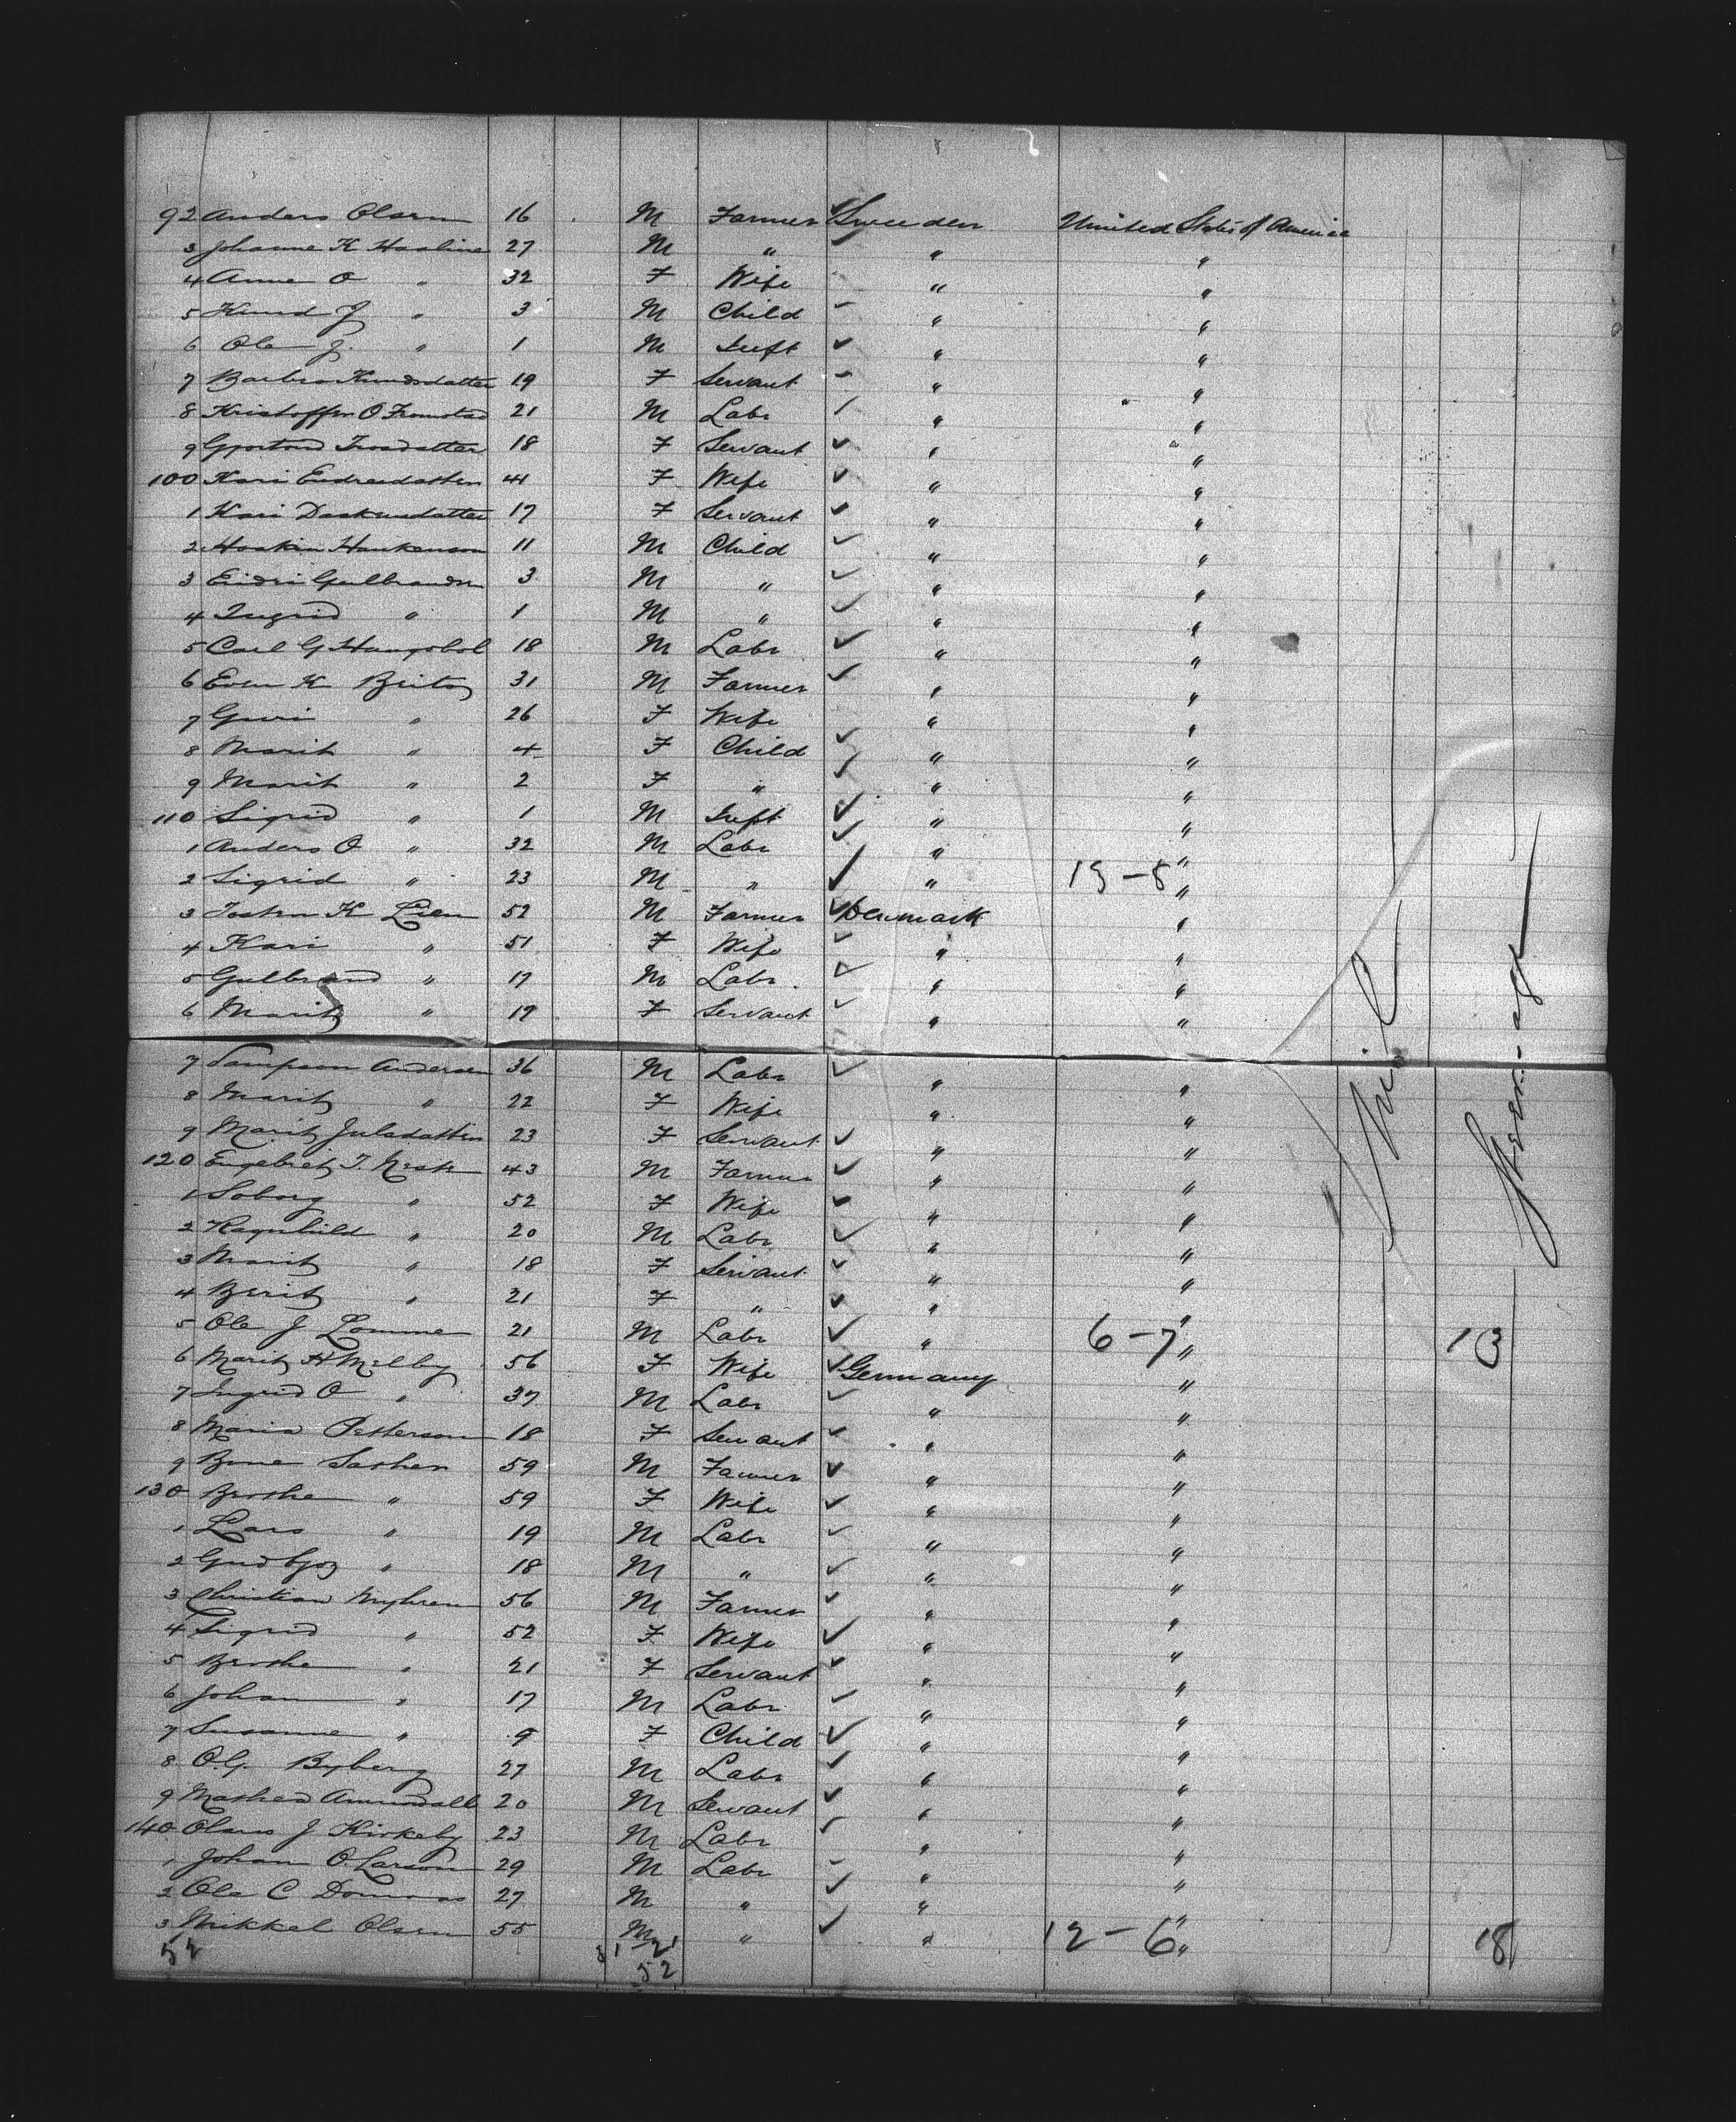 92 Anders Olsen 16 M Farmer Sweden United States of America
3 Johanne K Haaline 27 M " " "
4 Anne O " 32 F Wife " "
5 Knud J " 3 M Child " "
6 Ole J. " 1 M Inft " "
7 Barbro Knudsdatter 19 F Servant " "
8 Kristoffer O 21 M Labr " "
9 18 F Servant " "
100 Kari Endresdatter 41 F Wife " "
1 Kari 17 F Servant " "
2 Haakin Hankenson 11 M Child " "
3 Eidri Gulbrandsn 3 M " " "
4 Ingrid " 1 M " " "
5 Carl G 18 M Labr " "
6 Even K Brito 31 M Farmer " "
7 Guri " 26 F Wife " "
8 Marit " 4 F Child " "
9 Marit " 2 F " " "
110 Sigrid " 1 M Inft " "
1 Anders O " 32 M Labr " "
2 Sigrid " 23 M " " 13-8 "
3 Tosten K Lien 52 M Farmer Denmark "
4 Kari " 51 F Wife " "
5 Gulbrand " 17 M Labr. " "
6 Marit " 19 F Servant " "
7 Sampson Andersen 36 M Labr " "
8 Marit " 22 F Wife " "
9 Marit Julsdatten 23 F Servant " "
120 Engebret T. 43 M Farmer " "
1 Soborg " 52 F Wife " "
2 Ragnhild " 20 M Labr " "
3 Marit " 18 F Servant " "
4 Berit " 21 F " " "
5 Ole J Lomme 21 M Labr " 6-7 " 13
6 Marit H Melby 56 F Wife Germany "
7 Ingrid O " 37 M Labr " "
8 Maria Petterson 18 F Servant " "
9 59 M Farmer " "
130 Brothe " 59 F Wife " "
1 Lars " 19 M Labr " "
2 Gudbjor " 18 M " " "
3 Christian Myhren 56 M Farmer " "
4 Sigrid " 52 F Wife " "
5 Brothe " 21 F Servant " "
6 Johan " 17 M Labr " "
7 Susanne " 9 F Child " "
8 O.G. Byberg 27 M Labr " "
9 20 M Servant " "
140 Olaus J Kirkeby 23 M Labr " "
1 Johan O. Larson 29 M Labr " "
2 Ole C 27 M " " "
3 Mikkel Olsen 55 M " " 12-6 " 18
52 52